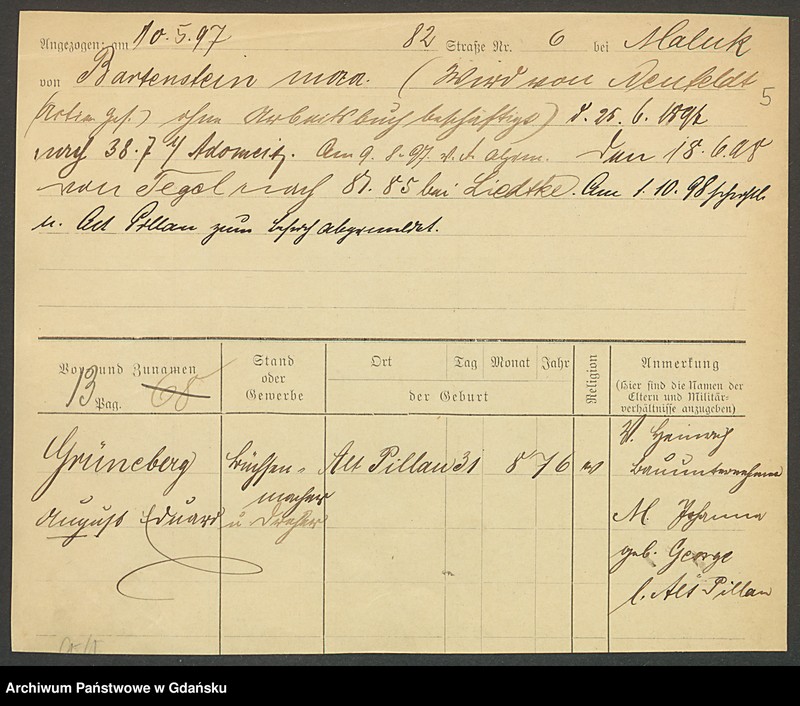 Angezogen: am 10.5.97 82 Straße Nr. 6 bei Maluk
von Bartenstein (Wird von Neufeldt 5
ohne Arbeitsbuch beschäftigt) d. 25. 6. 
nach 38. 7 Adomeit. Am 9. 8. 97. Den 18. 6. 98
von Tegel nach 81. 85 bei Liedtke. Am 1. 10. 98
n. Alt Pillau zum abgemeldet.
Vor- und Zunamen
13 Pag. 68
Stand
oder
Gewerbe
Ort Tag Monat Jahr
der Geburt
Religion
Anmerkung
(Hier sind die Namen der
Eltern und Militär-
verhältnisse anzugeben)
Grüneberg Büchsen- Alt Pillau 31 8 76 ev
macher
August Eduard u Dreher
V. Heinrich
Bauunternehmer
M. Johanna
geb. George
l. Alt Pillau
Archiwum Państwowe w Gdańsku